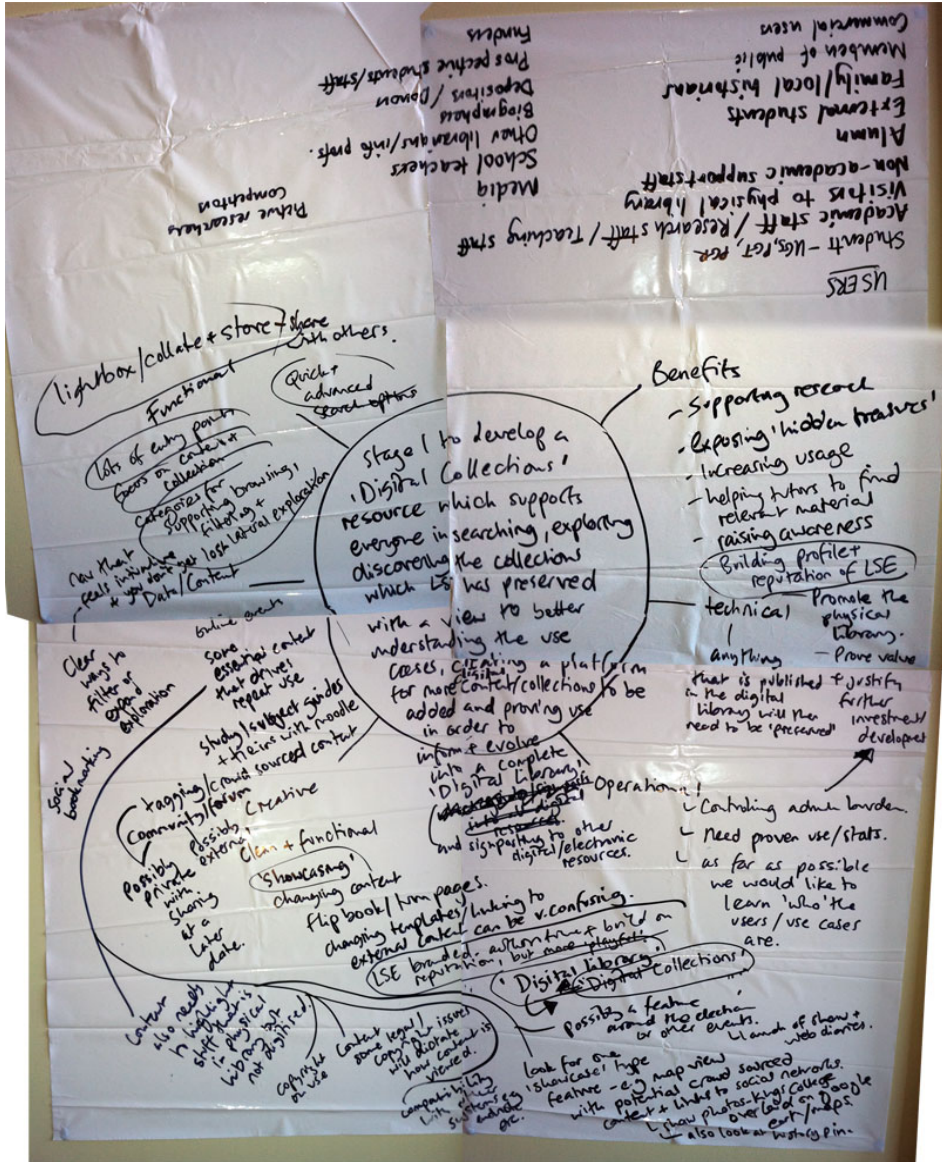 USERS
Students - UGs, PGT, PGR
Academic staff / Research staff / Teaching staff
Visitors to physical library
Non-academic support staff
Alumn
External students
Family/local historians
Member of public
Commercial users
Media
School teachers
Other librarians/info profs.
Biographers
Depositors / Donors
Prospective students/staff
Funders
Active researchers
Competitors
lightbox/collate + store + share
with others.
Functional
Quick +
advanced
search options
lots of entry points
focus on content +
collection
categories for
supporting browsing,
filtering +
lateral exploration
nav that
feels intuitive
+ you don't get lost
Data/Content
Stage 1 to develop a
'Digital Collections'
resource which supports
everyone in searching, exploring
discovering the collections
which LSE has preserved
with a view to better
understanding the use
cases, creating a platform
digital
for more content/collections to be
added and proving use
in order to
inform + evolve
into a complete
'Digital Library'
and signposting to other
digital/electronic
resources.
Benefits
- Supporting research
- exposing 'hidden treasures'
- Increasing usage
- helping tutors to find
relevant material
- raising awareness
Building profile +
reputation of LSE
- Promote the
physical
library.
- Prove value
+ justify
further
investment/
development
technical
anything
that is published
in the digital
library will then
need to be 'preserved'
Operational
Controlling admin burden.
Need proven use/stats.
as far as possible
we would like to
learn 'who' the
users/use cases
are.
online events
some
essential content
that drives
repeat use
study/subject guides
+ tie ins with moodle
Clear
ways to
filter or
expand
exploration
social
bookmarking
tagging/crowd sourced content
Community/forum
possibly
private
with
sharing
at a
later
date.
possibly
external
Creative
Clean + functional
'showcasing'
changing content
flip book/turn pages.
changing templates/linking to
external content can be v. confusing.
LSE branded, authoritative + build on
reputation, but more playful,
'Digital Library'
'Digital Collections'
possibly a feature
around the election
or other events.
Launch of show +
web diaries.
look for one
'showcase' type
feature - e.g map view
with potential crowd sourced
content + links to social networks.
show photos - Kings College
overlaid on Google
earth/maps
also look at history pin.
Content
also needs
to highlight
stuff that is
in physical
library but
not
digitised.
copyright
or use
Content
some legal/
copyright issues
will dictate
how content is
viewed.
compatibility
with other
systems eg
endnote
etc.